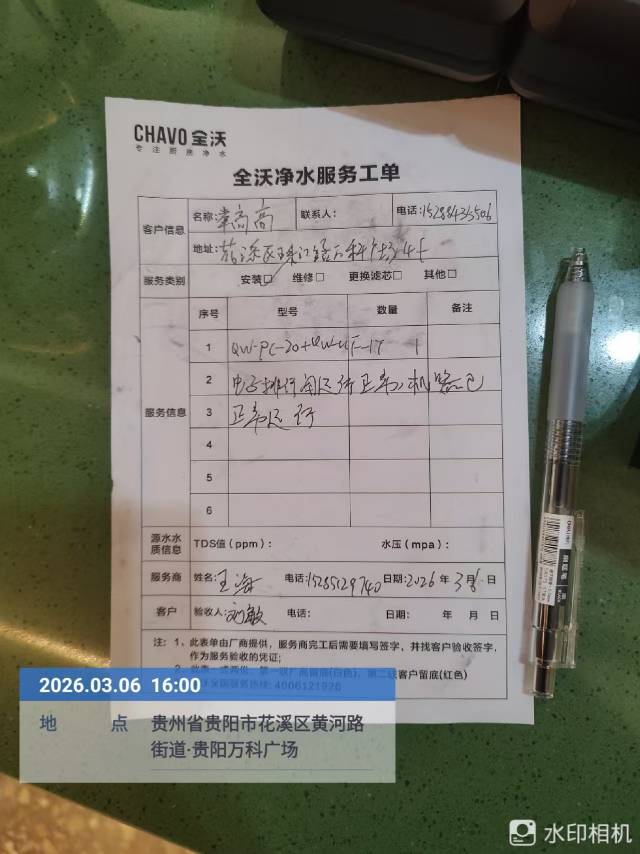 CHAVO 全沃
专注厨房净水
全沃净水服务工单
客户信息
名称: 高高
联系人:
电话:15288433506
地址:
服务类别
安装□ 维修□ 更换滤芯□ 其他□
服务信息
序号 型号 数量 备注
1 QW-PC-20+QW-UF-1T 1
2 电子排污阀运行正常,机器已
3 正常运行
4
5
6
源水水质信息
TDS值(ppm): 水压(mpa):
服务商 姓名:王海 电话:15285129740 日期:2026年3月6日
客户 验收人:刘敏 电话: 日期: 年 月 日
注:1、此表单由厂商提供,服务商完工后需要填写签字,并找客户验收签字,
作为服务验收的凭证;
2、此表一式两份,第一联厂商留底(白色),第二联客户留底(红色)
全国服务热线:4006121926
2026.03.06 16:00
地点 贵州省贵阳市花溪区黄河路
街道·贵阳万科广场
水印相机